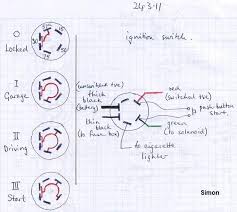 24.3.11
ignition switch.
O
Locked
I
Garage
(unswitched +ve)
thick
black
(battery)
red
(switched +ve)
to push button
start.
thin
black
(to fuse box)
green
(to solenoid)
II
Driving
to cigarette
lighter
III
Start
Simon